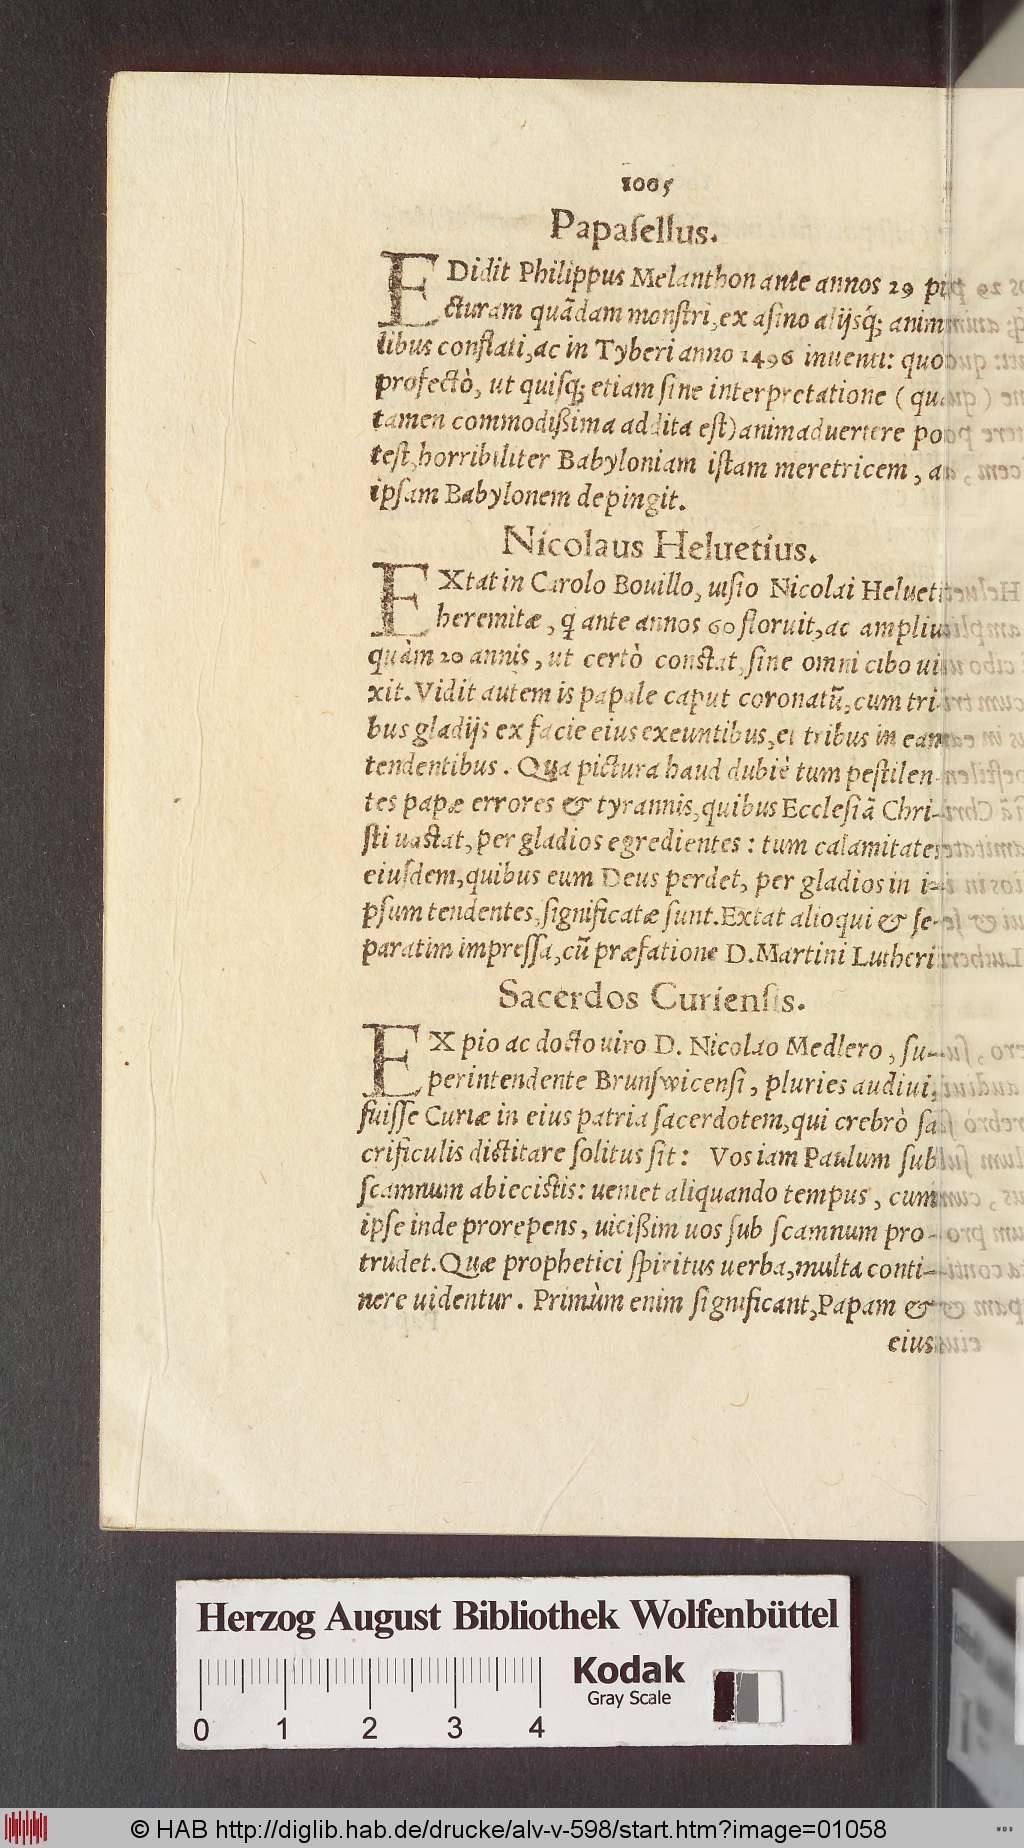 1005
Papaſellus.
EDidit Philippus Melanthon ante annos 29 pi
cturam quãdam monſtri, ex aſino alijsq́; anim
libus conſtati, ac in Tyberi anno 1496 inuenti: quo
profectò, ut quiſq; etiam ſine interpretatione ( qu
tamen commodißima addita eſt) animaduertere po
teſt, horribiliter Babyloniam iſtam meretricem, a
ipſam Babylonem depingit.
Nicolaus Heluetius.
EXtat in Carolo Bouillo, uiſio Nicolai Helueti
heremitæ, q̃ ante annos 60 floruit, ac amplius
quàm 20 annis, ut certò conſtat, ſine omni cibo ui
xit. Vidit autem is papale caput coronatũ, cum tri-
bus gladijs ex facie eius exeuntibus, et tribus in eam
tendentibus. Qua pictura haud dubiè tum peſtilen-
tes papæ errores & tyrannis, quibus Eccleſiã Chri-
ſti uaſtat, per gladios egredientes: tum calamitates
eiuſdem, quibus eum Deus perdet, per gladios in i-
pſum tendentes, ſignificatæ ſunt. Extat alioqui & ſe-
paratim impreſſa, cũ præfatione D. Martini Lutheri
Sacerdos Curienſis.
EX pio ac docto uiro D. Nicolao Medlero, ſu-
perintendente Brunſwicenſi, pluries audiui,
fuiſſe Curiæ in eius patria ſacerdotem, qui crebrò ſa
crificulis dictitare ſolitus ſit: Vos iam Paulum ſub
ſcamnum abiecistis: ueniet aliquando tempus, cum
ipſe inde prorepens, uicißim uos ſub ſcamnum pro-
trudet. Quæ prophetici ſpiritus uerba, multa conti-
nere uidentur. Primùm enim ſignificant, Papam &
eius
Herzog August Bibliothek Wolfenbüttel
Kodak
Gray Scale
0 1 2 3 4
© HAB http://diglib.hab.de/drucke/alv-v-598/start.htm?image=01058